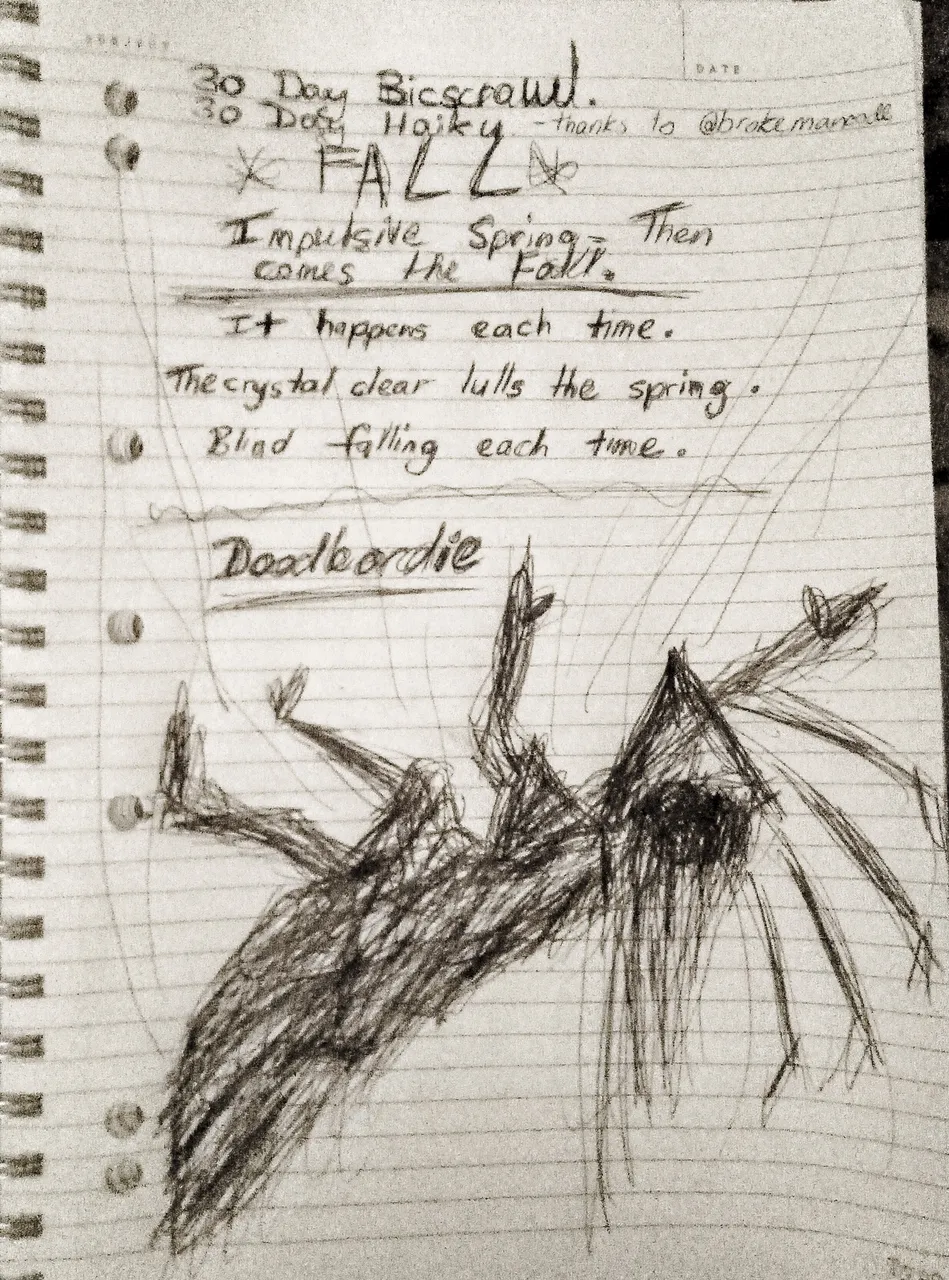 SUBJECT
DATE
30 Day Bicscrawl.
30 Day Haiku - thanks to
FALL
Impulsive Spring - Then
comes the Fall.
It happens each time.
The crystal clear lulls the spring.
Blind falling each time.
Doodleordie